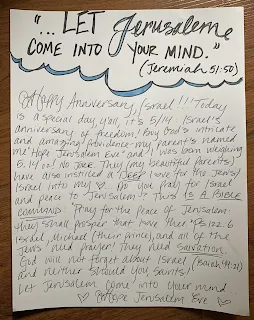 "... LET Jerusalem
COME INTO YOUR MIND."
(Jeremiah 51:50)
Happy Anniversary, Israel!!! Today
is a special day, y'all, it's 5/14: Israel's
anniversary of freedom! By God's intricate
and amazing providence my parents named
me "Hope Jerusalem Eve" and I was born weighing
5.14 lbs! No Joke. They (my beautiful parents)
have also instilled a DEEP love for the Jews/
Israel into my ♡. Do you pray for Israel
and peace to Jerusalem? This IS A BIBLE
COMMAND: "Pray for the peace of Jerusalem:
they shall prosper that love thee." PS. 122:6
Israel, Michael (their prince), and all of the
Jews need prayer! They need salvation.
God will not forget about Israel (Isaiah 44:21)
and neither should you, saints!
Let Jerusalem come into your mind.
♡ Hope Jerusalem Eve ♡